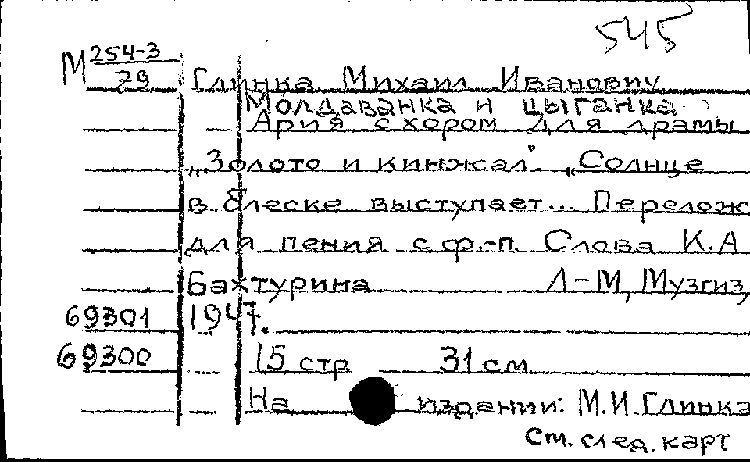 545
М 254-3
79
Глинка Михаил Иванович
Молдаванка и цыганка
Ария с хором для драмы
„Золото и кинжал". „Солнце
в блеске выступает... Перелож
для пения с ф.-п. Слова К.А
Бахтурина Л-М, Музгиз,
69301 1947.
69300 15 стр 31 см
На издании: М.И.Глинка
См. след. карт